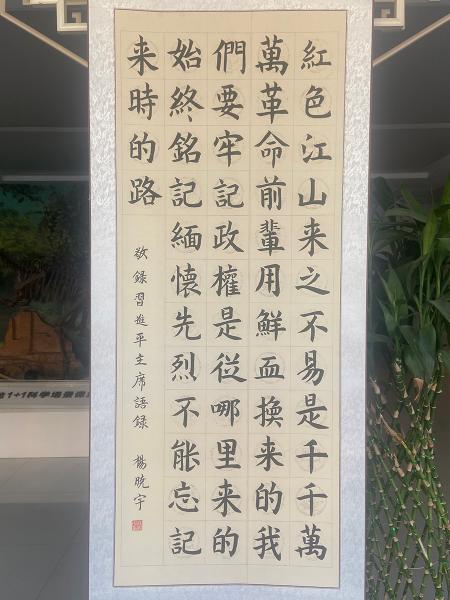 紅色江山来之不易是千千萬
萬革命前輩用鮮血換来的我
們要牢記政權是從哪里来的
始終銘記緬懷先烈不能忘記
来時的路
敬錄習近平主席語錄 楊曉宇
1+1科学